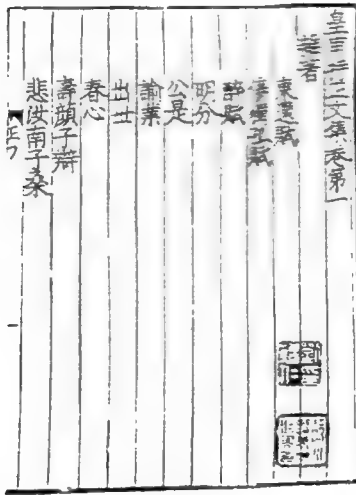 皇甫持正文集卷第一
雜著
東還賦
傷獨孤賦
醉賦
明分
公是
諭業
出世
春心
壽顏子辯
悲汝南子桑